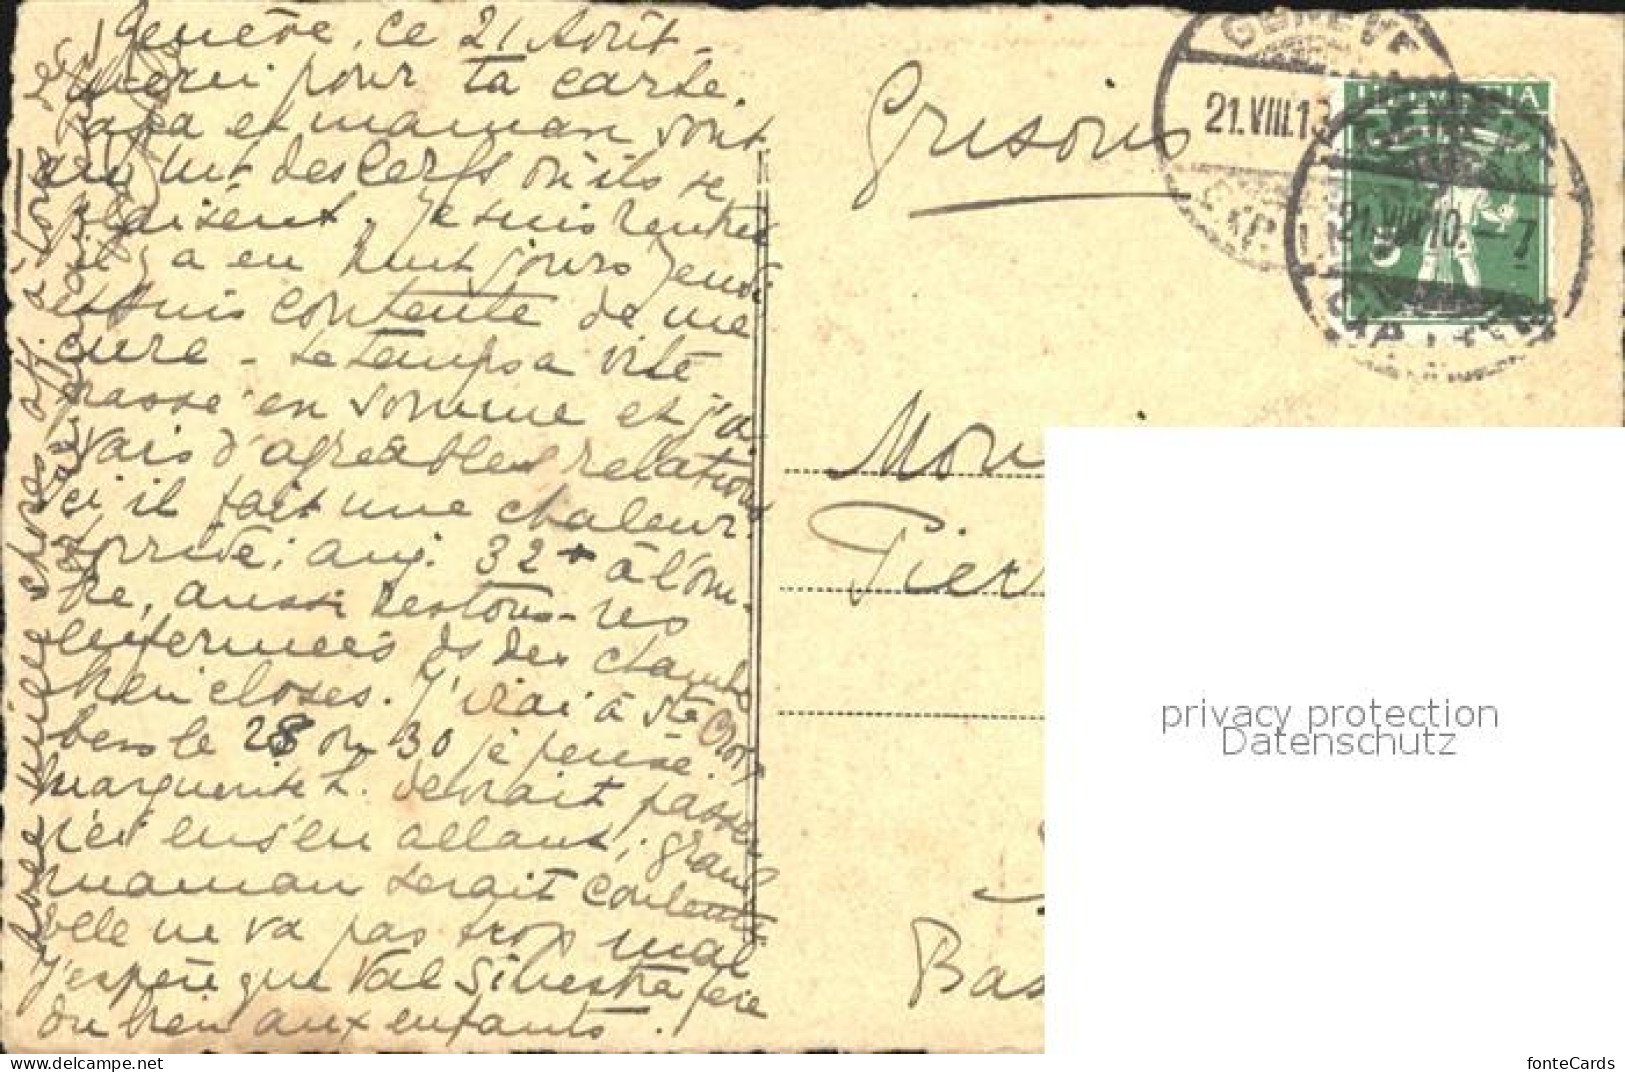 Genève, ce 21 Août -
Merci pour ta carte.
Papa et maman sont
au Mt des Cerfs où ils se
plaisent. Je suis rentrée
il y a eu huit jours jeudi
et suis contente de me
cure - Le temps a vite
passé en somme et j'a-
vais d'agréables relations
ici il fait une chaleur
torride; auj. 32 + à l'om-
bre, aussi restons-ns
enfermées ds des chambres
bien closes. J'irai à Ste Croix
vers le 28 ou 30 je pense.
Marguerite L. devrait passer
ici en s'en allant; grand
maman serait contente
elle ne va pas trop mal
J'espère que Val Silvestra fera
du bien aux enfants.
mille choses aff.
Grisons
GENEVE
21.VIII.13
HELVETIA
21.VIII.10.—7
Mon
Pier
Bas
privacy protection
Datenschutz
fonteCards